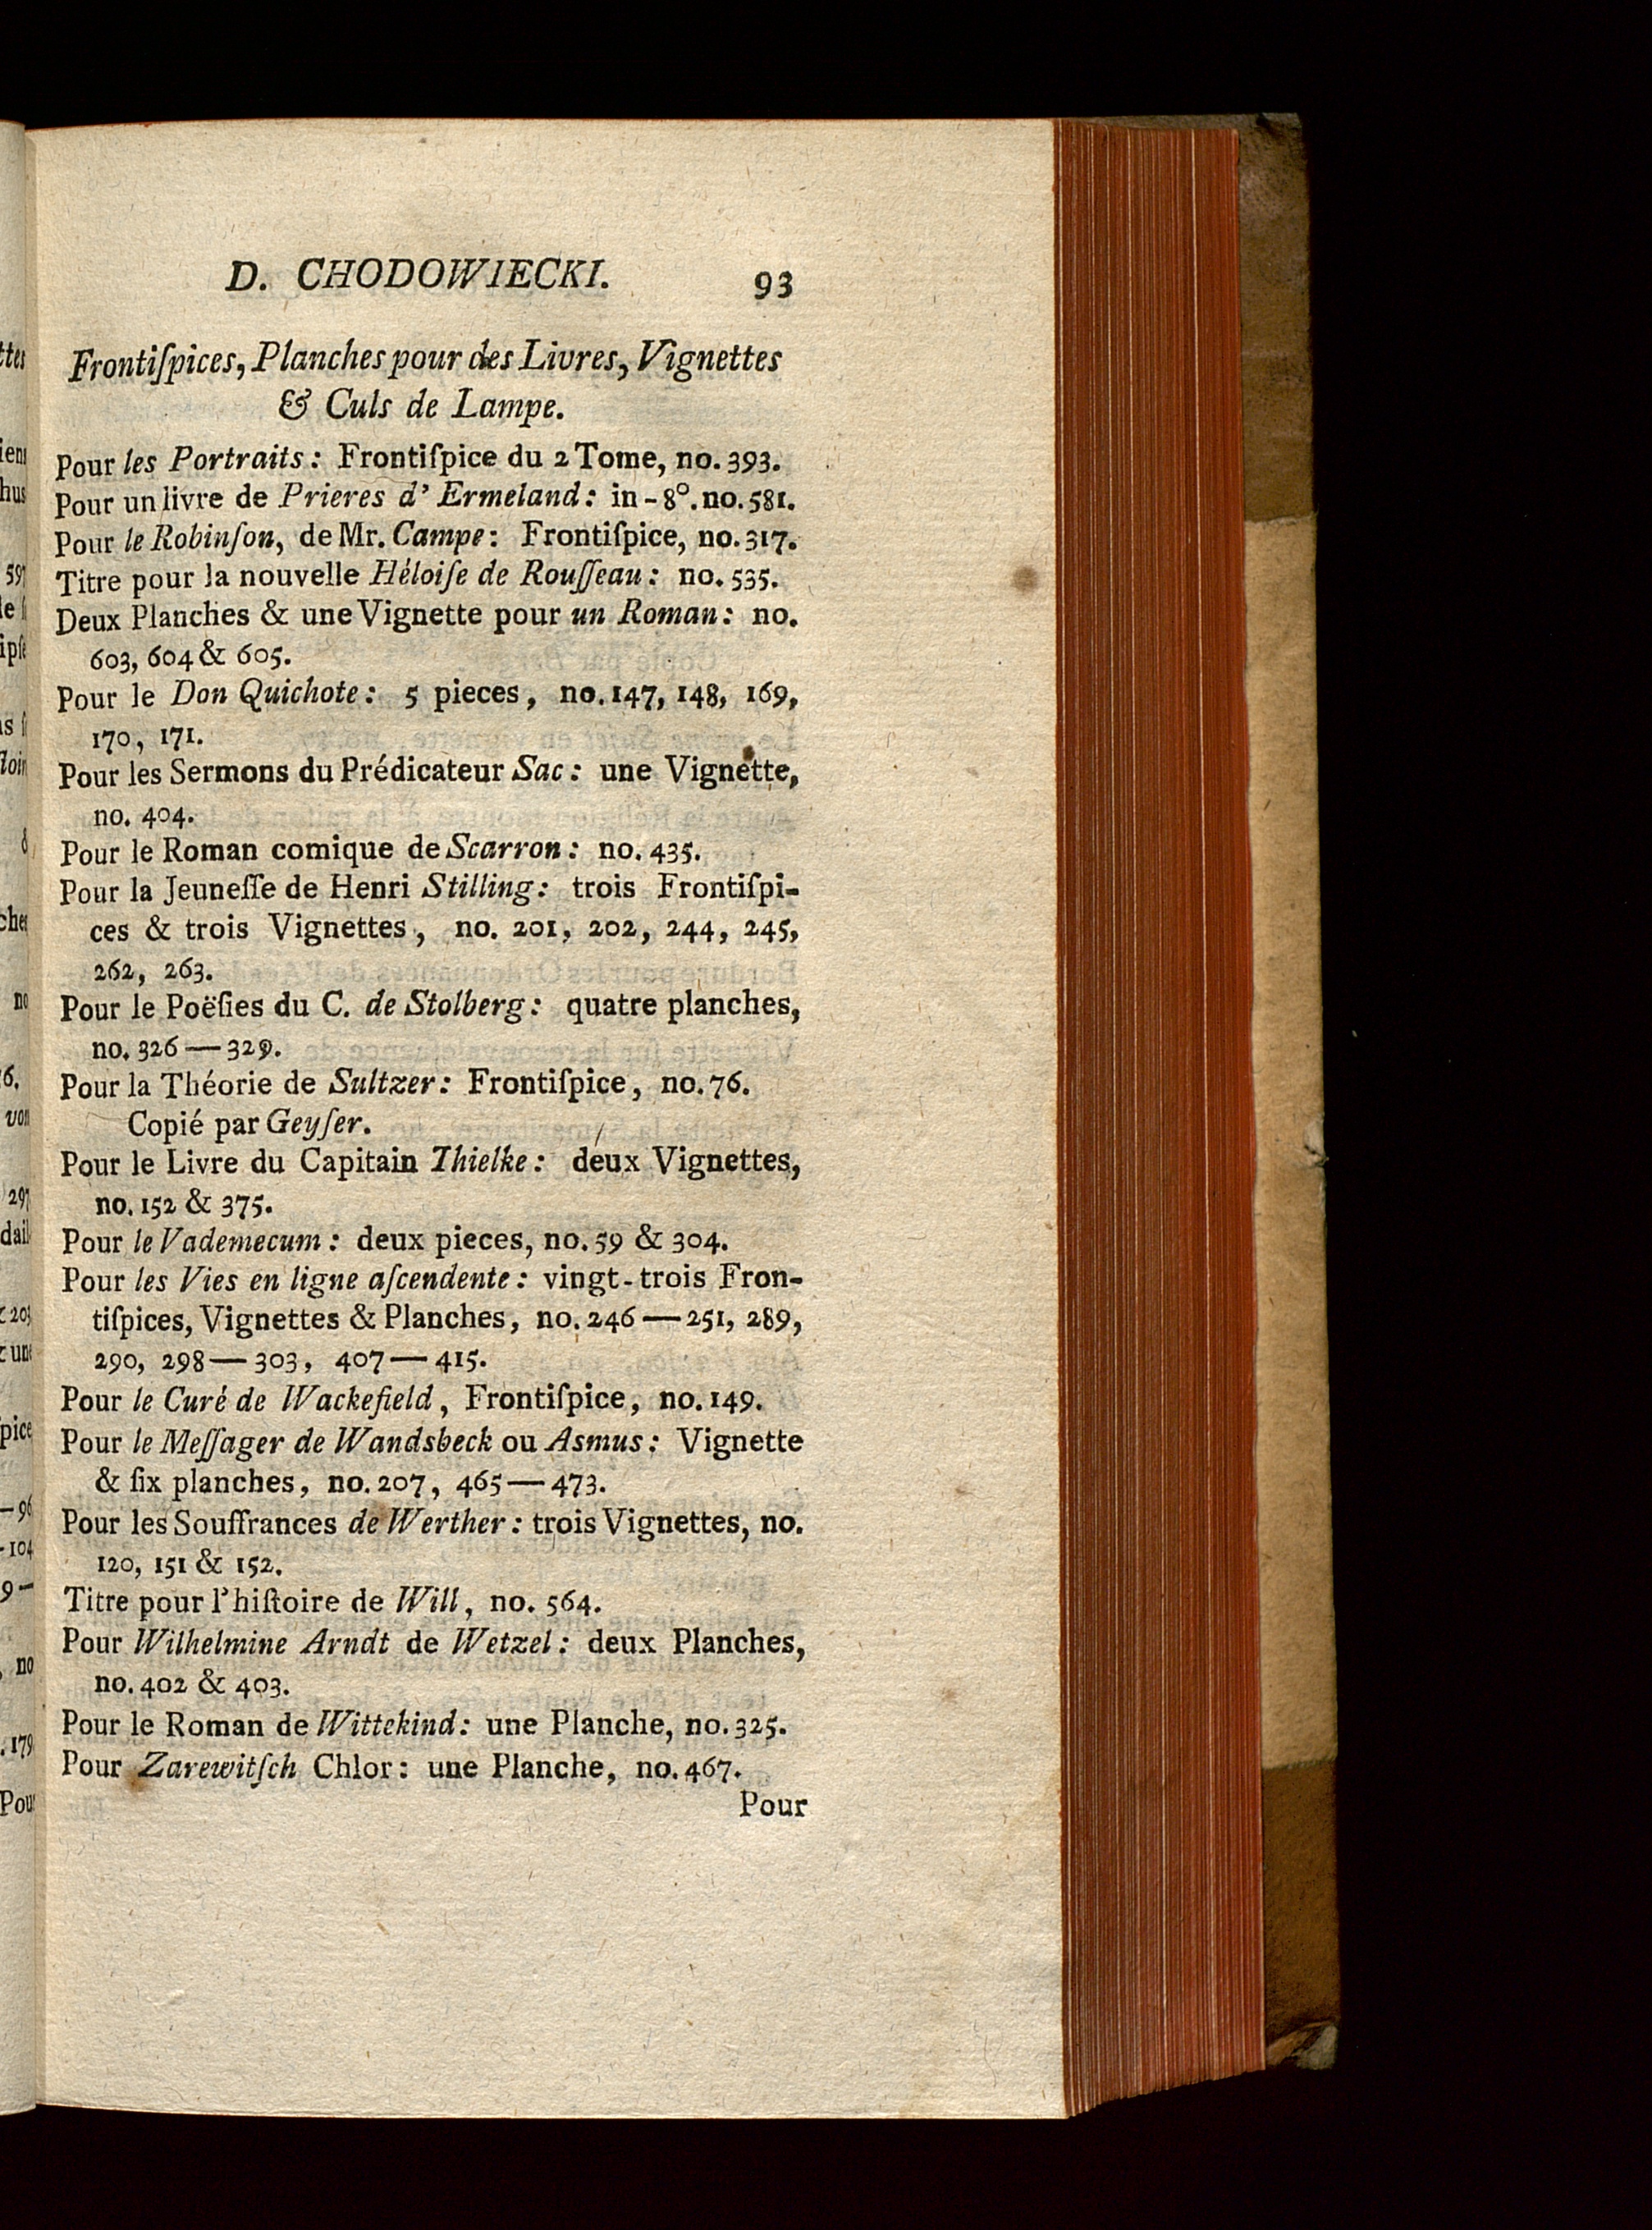 D. CHODOWIECKI. 93
Frontiſpices, Planches pour des Livres, Vignettes
& Culs de Lampe.
Pour les Portraits: Frontiſpice du 2 Tome, no. 393.
Pour un livre de Prieres d' Ermeland: in-8°. no. 581.
Pour le Robinſon, de Mr. Campe: Frontiſpice, no. 317.
Titre pour la nouvelle Héloiſe de Rouſſeau: no. 535.
Deux Planches & une Vignette pour un Roman: no.
603, 604 & 605.
Pour le Don Quichote: 5 pieces, no. 147, 148, 169,
170, 171.
Pour les Sermons du Prédicateur Sac: une Vignette,
no. 404.
Pour le Roman comique de Scarron: no. 435.
Pour la Jeuneſſe de Henri Stilling: trois Frontiſpi-
ces & trois Vignettes, no. 201, 202, 244, 245,
262, 263.
Pour le Poëſies du C. de Stolberg: quatre planches,
no. 326 — 329.
Pour la Théorie de Sultzer: Frontiſpice, no. 76.
Copié par Geyſer.
Pour le Livre du Capitain Thielke: deux Vignettes,
no. 152 & 375.
Pour le Vademecum: deux pieces, no. 59 & 304.
Pour les Vies en ligne aſcendente: vingt-trois Fron-
tiſpices, Vignettes & Planches, no. 246 — 251, 289,
290, 298 — 303, 407 — 415.
Pour le Curé de Wackefield, Frontiſpice, no. 149.
Pour le Meſſager de Wandsbeck ou Asmus: Vignette
& ſix planches, no. 207, 465 — 473.
Pour les Souffrances de Werther: trois Vignettes, no.
120, 151 & 152.
Titre pour l'hiſtoire de Will, no. 564.
Pour Wilhelmine Arndt de Wetzel: deux Planches,
no. 402 & 403.
Pour le Roman de Wittekind: une Planche, no. 325.
Pour Zarewitſch Chlor: une Planche, no. 467.
Pour